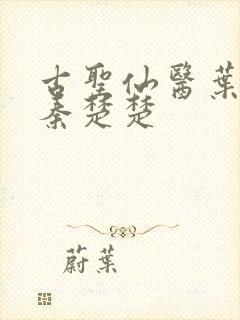 古聖仙醫葉
秦楚楚
蔚葉